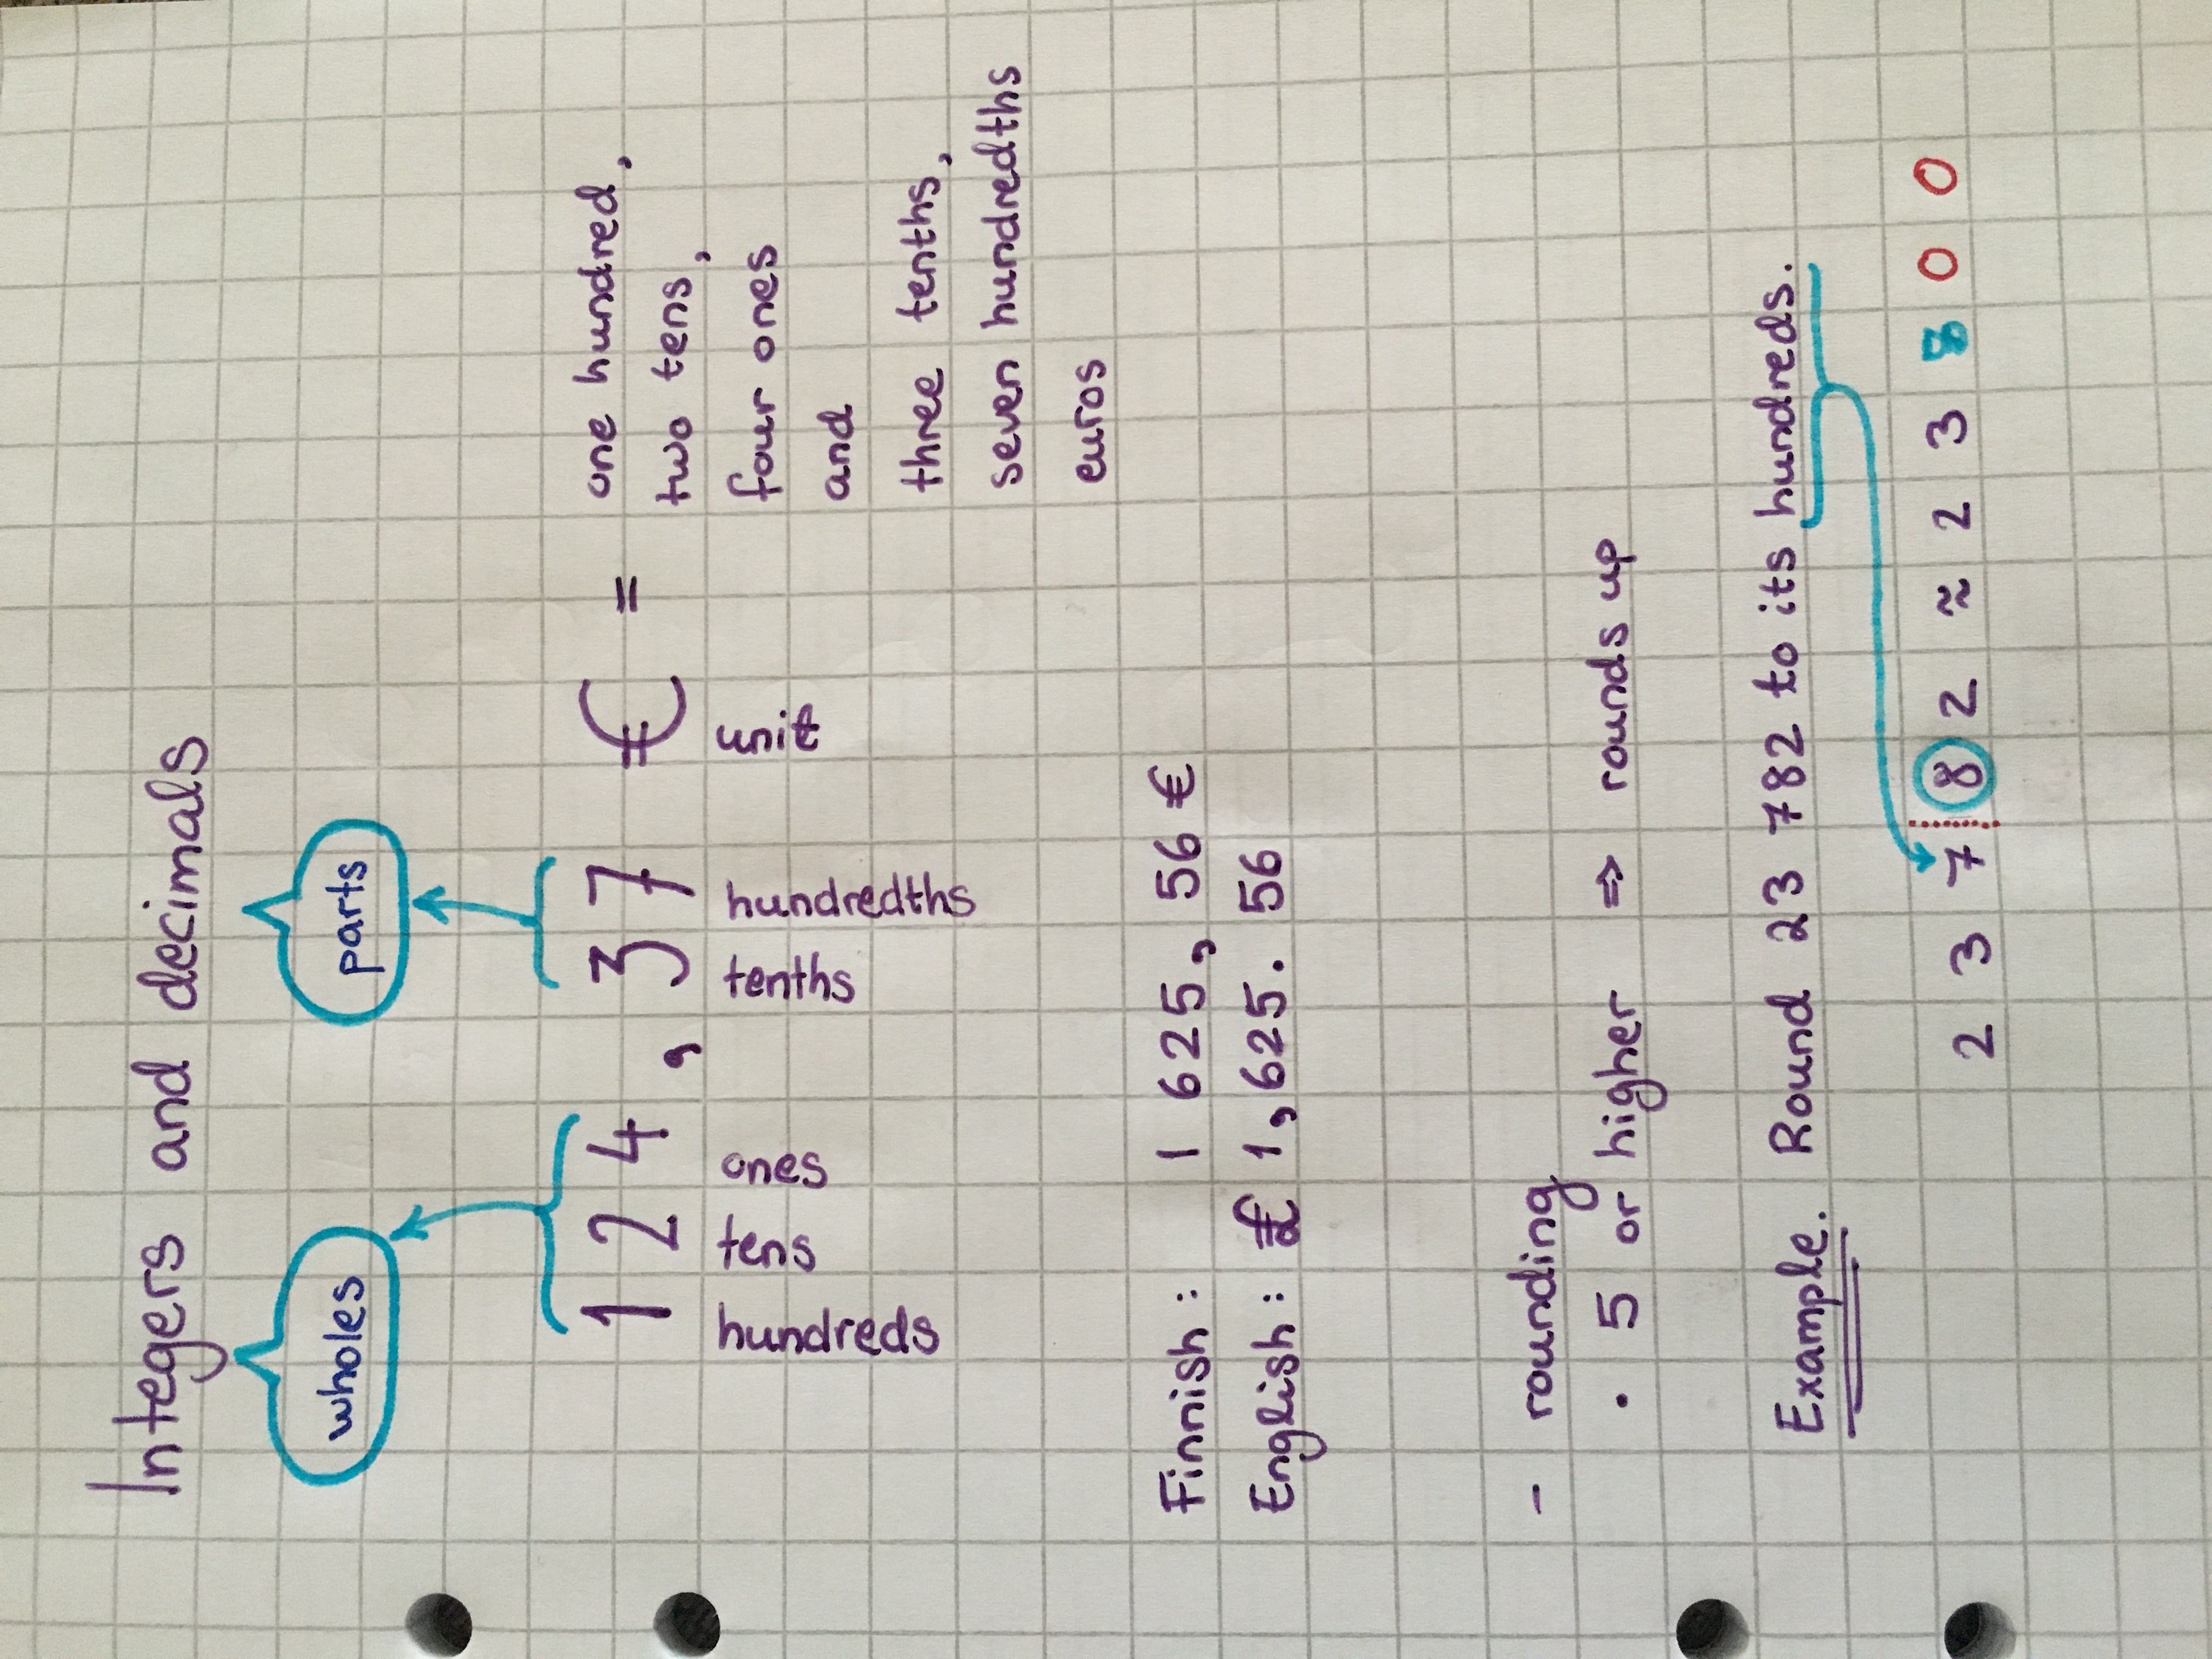 Integers and decimals
wholes parts
1 2 4 , 3 7 € = one hundred,
hundreds tens ones tenths hundredths unit two tens,
four ones
and
three tenths,
seven hundredths
euros
Finnish: 1 625, 56 €
English: £ 1,625. 56
- rounding
• 5 or higher ⇒ rounds up
Example. Round 23 782 to its hundreds.
2 3 7 8 2 ≈ 2 3 8 0 0